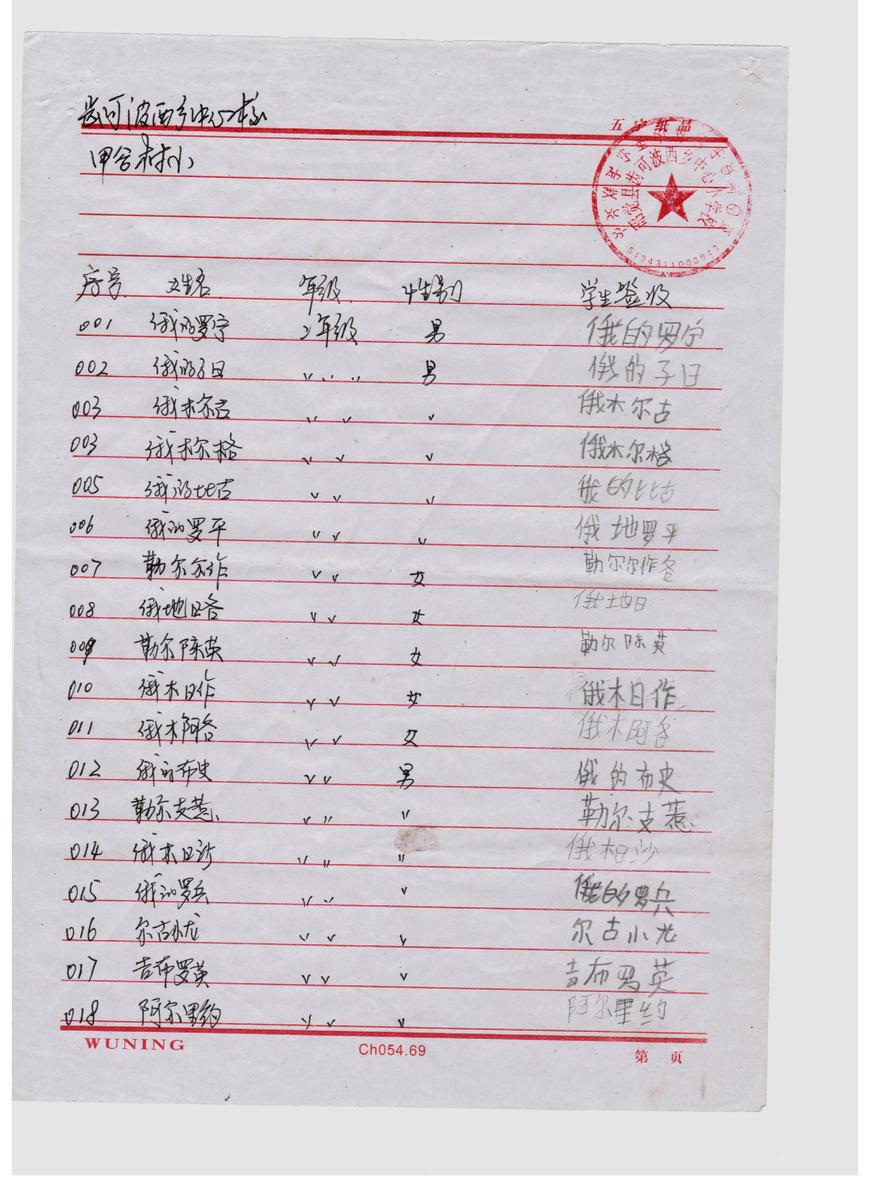 尚可波西乡中心校
五宁纸品
甲谷村小
尚可波西乡中心小学校
5134311000943
序号 姓名 年级 性别 学生签收
001 俄的罗宁 2年级 男 俄的罗宁
002 俄的子日 〃 〃 〃 男 俄的子日
003 俄木尔古 〃 〃 〃 俄木尔古
003 俄木尔格 〃 〃 〃 俄木尔格
005 俄的比古 〃 〃 〃 俄的比古
006 俄的罗平 〃 〃 〃 俄地罗平
007 勒尔尔作 〃 〃 女 勒尔尔作
008 俄地日各 〃 〃 女 俄地日
009 勒尔陈英 〃 〃 女 勒尔陈英
010 俄木日作 〃 〃 女 俄木日作
011 俄木阿各 〃 〃 女 俄木阿各
012 俄的布史 〃 〃 男 俄的布史
013 勒尔支惹 〃 〃 〃 勒尔支惹
014 俄木日沙 〃 〃 〃 俄木日沙
015 俄的罗兵 〃 〃 〃 俄的罗兵
016 尔古小龙 〃 〃 〃 尔古小龙
017 吉布罗英 〃 〃 〃 吉布罗英
018 阿尔里约 〃 〃 〃 阿尔里约
WUNING Ch054.69 第 页